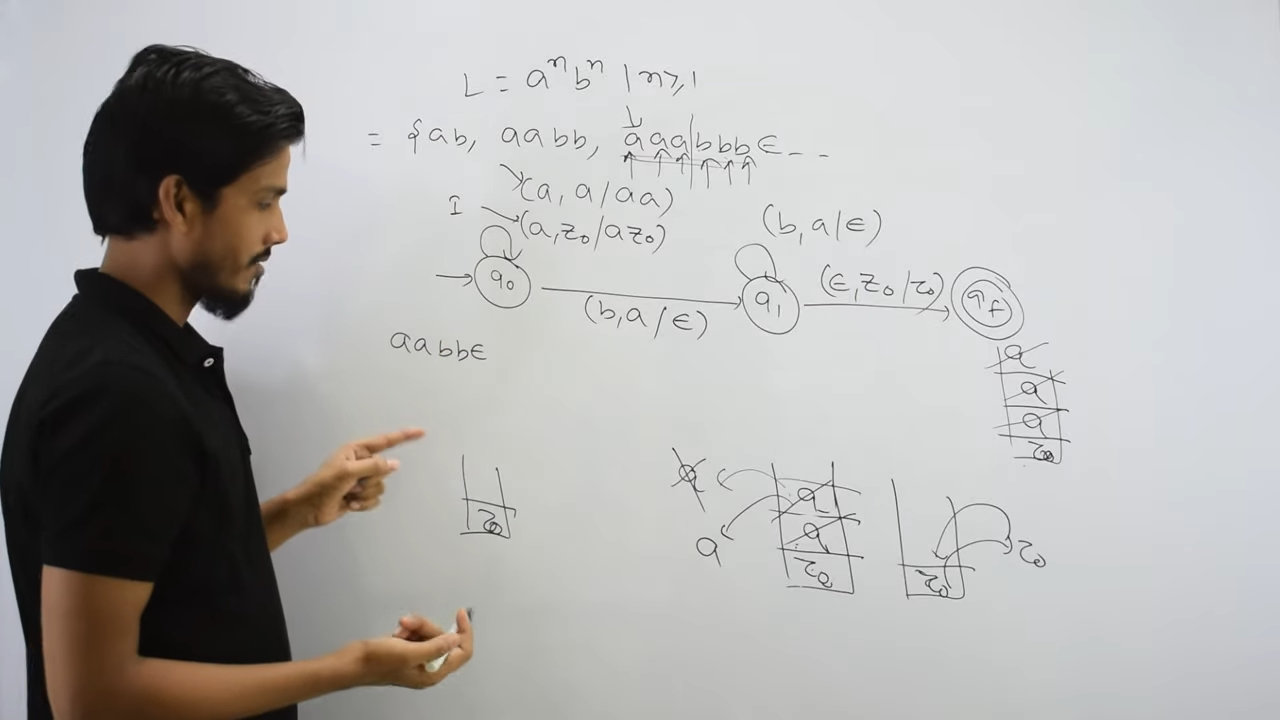 L = aⁿbⁿ | n≥1
= {ab, aabb, aaa|bbbϵ - -
(a, a/aa)
I (a, z₀/az₀) (b, a/ϵ)
q₀ (b, a/ϵ) q₁ (ϵ, z₀/z₀) qf
aabbϵ
a
a
a
z₀
z₀
a a
a a
z₀ z₀ z₀